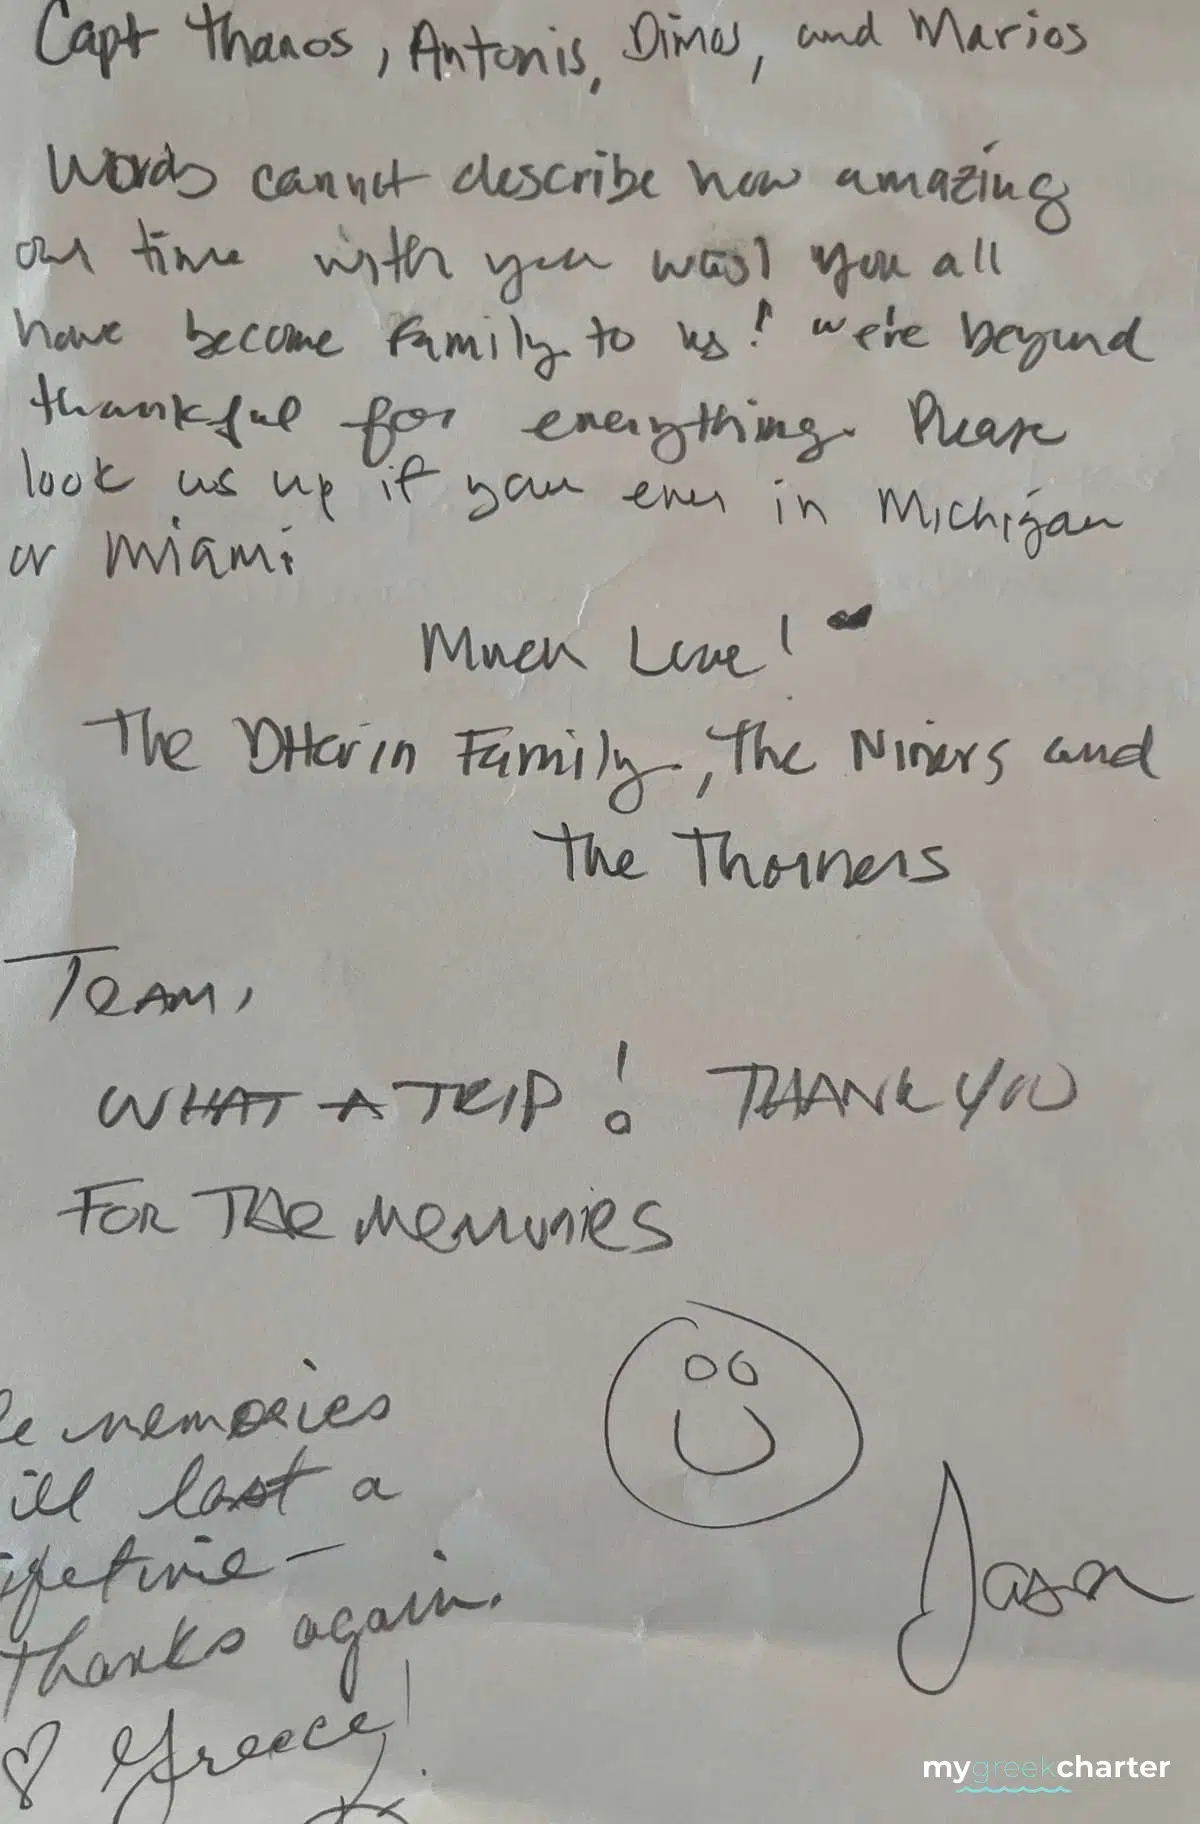 Capt Thanos, Antonis, Dimos, and Marios
Words cannot describe how amazing
our time with you was! You all
have become family to us! we're beyond
thankful for everything. Please
look us up if your ever in Michigan
or Miami
Much Love!
The Family, The Niners and
The Thorners
TEAM,
WHAT A TRIP! THANK YOU
FOR THE MEMORIES
memories
ill last a
ifetime -
thanks again.
♡ Greece!
Jason
mygreekcharter